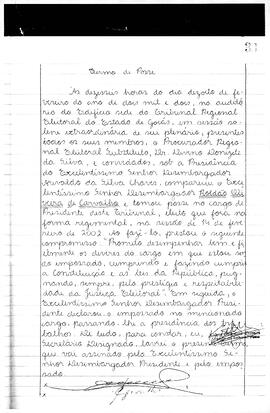 Termo de Posse
Às dezesseis horas do dia dezoito de fe-
vereiro do ano de dois mil e dois, no auditó-
rio do Edifício sede do Tribunal Regional
Eleitoral do Estado de Goiás, em sessão so-
lene extraordinária de seu plenário, presentes
todos os seus membros, o Procurador Regio-
nal Eleitoral Substituto, Dr.
da Silva, e convidados, sob a Presidência
do Excelentíssimo Senhor Desembargador
da Silva Chaves, compareceu o Exce-
lentíssimo Senhor Desembargador
de Carvalho e tomou posse no cargo de
Presidente deste Tribunal, eleito que fora na
forma regimental, na sessão de 14 de feve-
reiro de 2002. Ao fazê-lo, prestou o seguinte
compromisso: "Prometo desempenhar bem e fi-
elmente os deveres do cargo em que estou sen-
do empossado, cumprindo e fazendo cumprir
a Constituição e as leis da República, pug-
nando, sempre, pelo prestígio e respeitabili-
dade da Justiça Eleitoral". Em seguida, o
Excelentíssimo Senhor Desembargador Presi-
dente declarou o empossado no mencionado
cargo, passando-lhe a presidência dos tra-
balhos. De tudo, para constar, eu,
Secretário Designado, lavrei o presente termo
que vai assinado pelo Excelentíssimo Se-
nhor Desembargador Presidente e pelo empos-
sado.